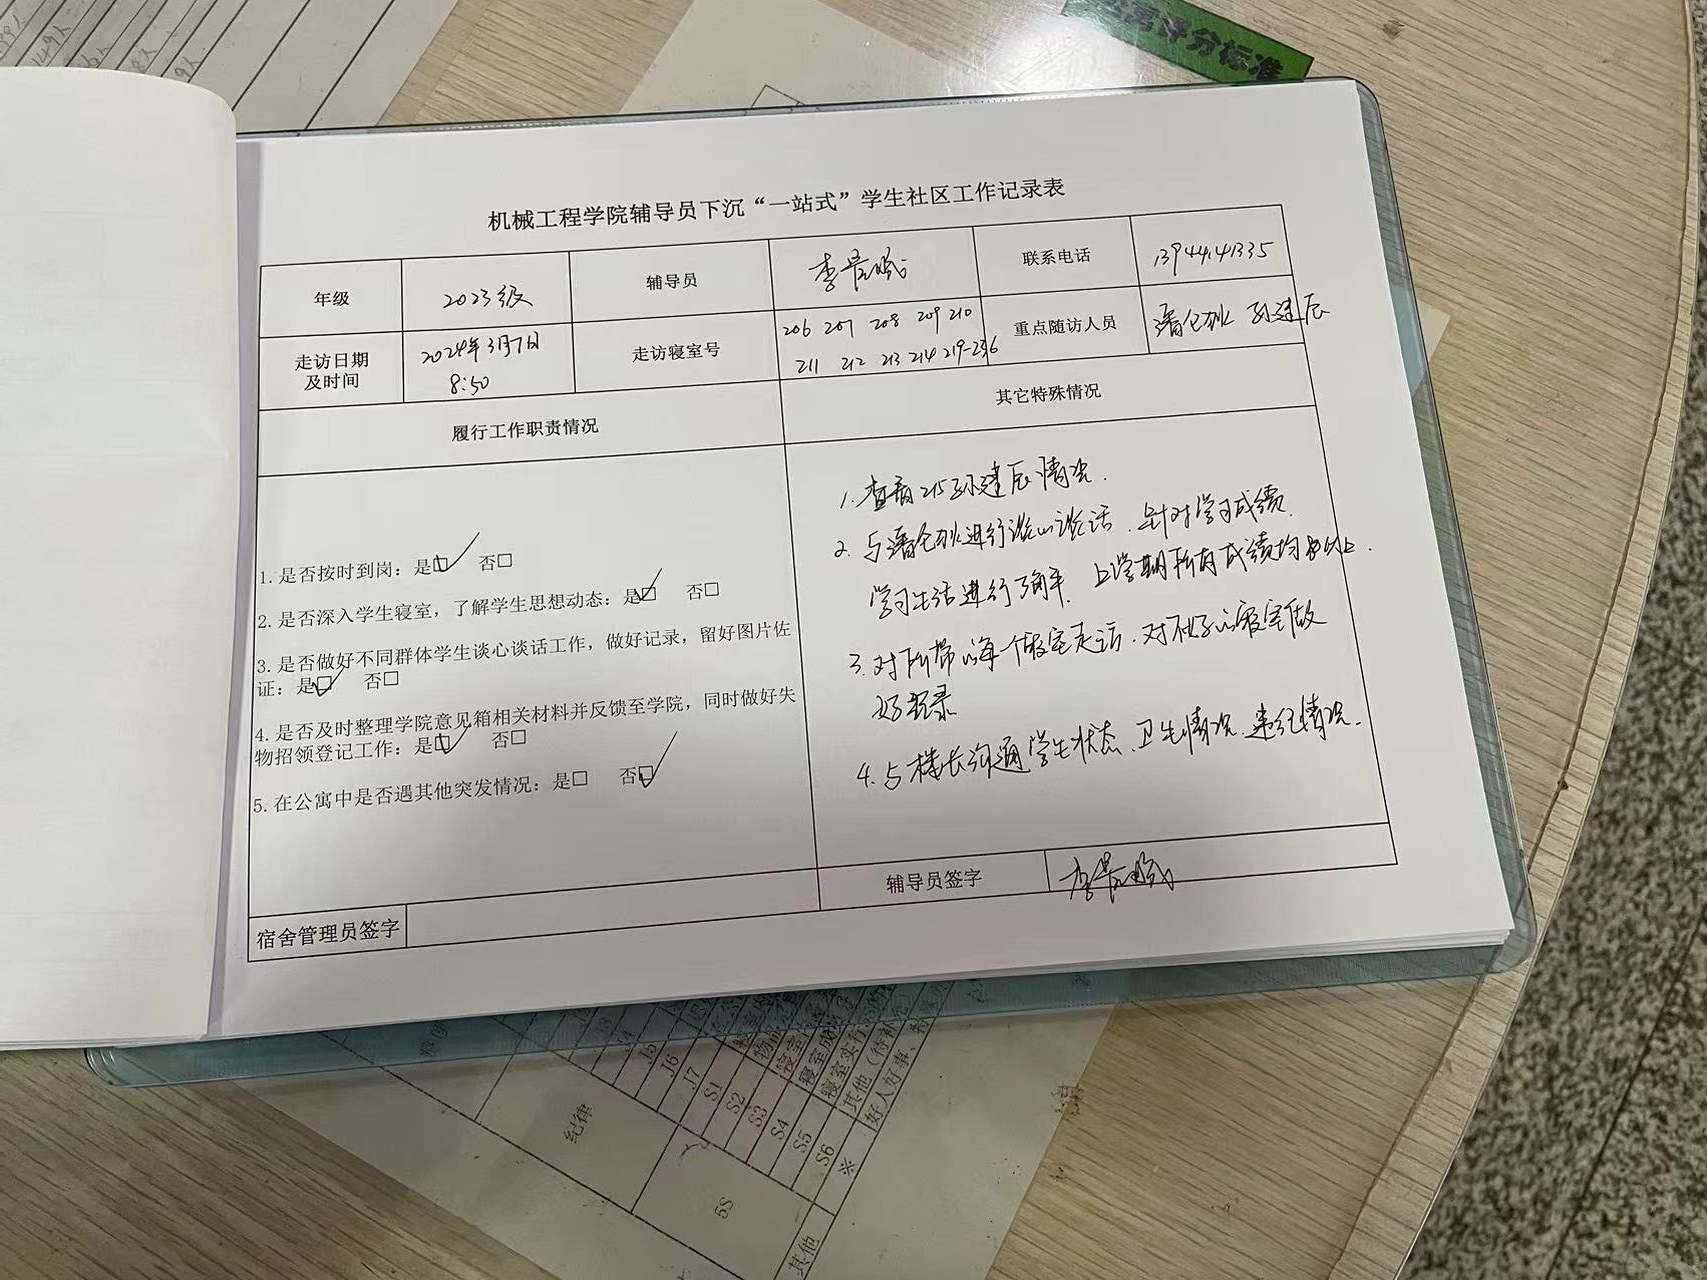 评分标准
149人
机械工程学院辅导员下沉“一站式”学生社区工作记录表
年级
2023级
辅导员
李
联系电话
走访日期
及时间
2024年3月7日
8:50
走访寝室号
206 207 208 209 210
211 212 213 214 219-236
重点随访人员
潘 孙建辰
履行工作职责情况
其它特殊情况
1.是否按时到岗：是☑ 否□
2.是否深入学生寝室，了解学生思想动态：是☑ 否□
3.是否做好不同群体学生谈心谈话工作，做好记录，留好图片佐
证：是☑ 否□
4.是否及时整理学院意见箱相关材料并反馈至学院，同时做好失
物招领登记工作：是☑ 否□
5.在公寓中是否遇其他突发情况：是□ 否☑
1.查看215孙建辰情况.
2.与潘 进行谈心谈话.针对学习成绩.
学习生活进行了解.上学期所有成绩均 以上.
3.对所带的每个寝室走访.对不好的寝室做
好记录
4.与楼长沟通学生状态.卫生情况.违纪情况.
辅导员签字
李
宿舍管理员签字
J5
J6
J7
S1
S2
S3
S4
S5
S6
※
纪律
5S
其他
寝室成
寝室实行
其他（待补充）
好人好事、